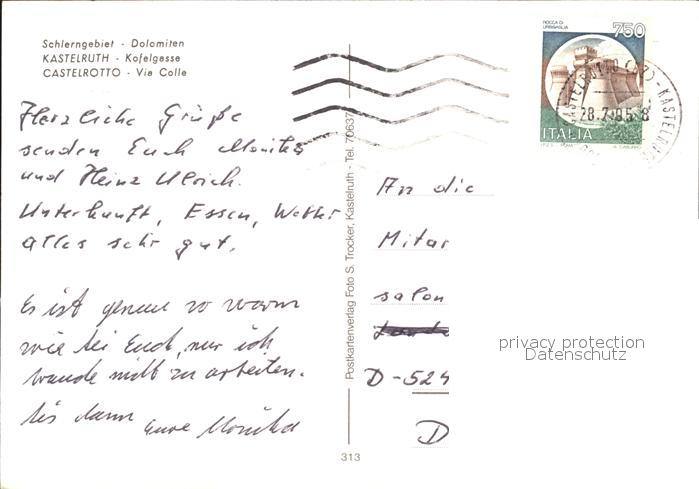 Schlerngebiet - Dolomiten
KASTELRUTH - Kofelgasse
CASTELROTTO - Via Colle
Herzliche Grüße
senden Euch Monika
und Heinz Ulrich.
Unterkunft, Essen, Wetter
alles sehr gut.
Es ist genau so warm
wie bei Euch, nur ich
brauche nicht zu arbeiten.
Bis dann
Eure Monika
Postkartenverlag Foto S. Trocker, Kastelruth - Tel. 70637
313
ROCCA DI
URBISAGLIA
750
ITALIA
28.7.95-8
KASTELRUTH
An die
Mitar
salon
D-524
D
privacy protection
Datenschutz